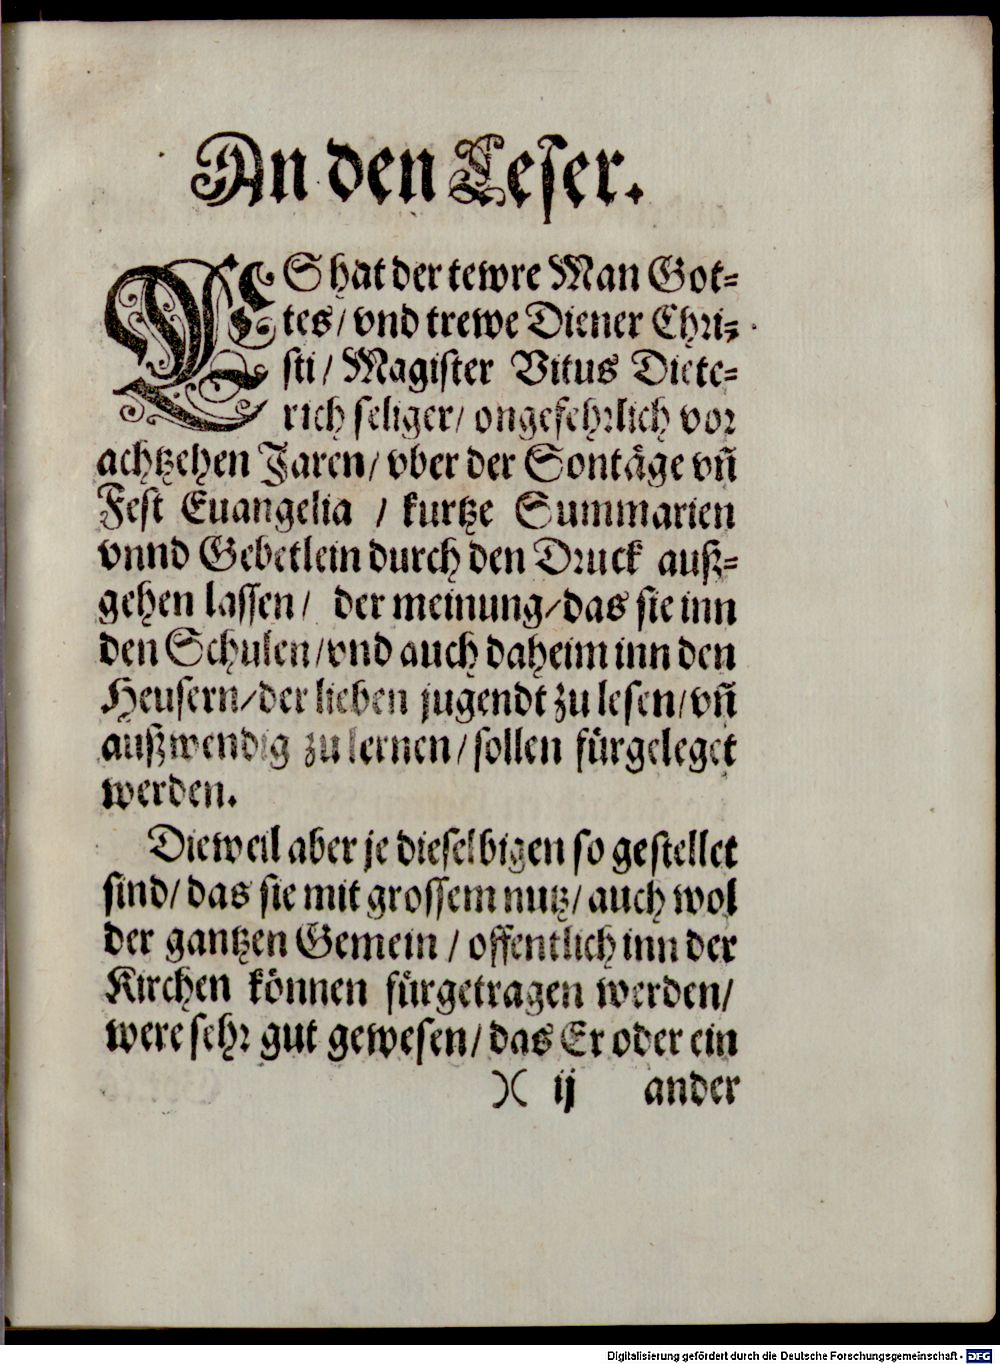 An den Leser.
ES hat der tewre Man Got-
tes/ vnd trewe Diener Chri-
sti/ Magister Vitus Diete-
rich seliger/ ongefehrlich vor
achtzehen Jaren/ vber der Sontäge vñ
Fest Euangelia / kurtze Summarien
vnnd Gebetlein durch den Druck auß-
gehen lassen/ der meinung/ das sie inn
den Schulen/ vnd auch daheim inn den
Heusern/ der lieben jugendt zu lesen/ vñ
außwendig zu lernen/ sollen fürgeleget
werden.
Dieweil aber je dieselbigen so gestellet
sind/ das sie mit grossem nutz/ auch wol
der gantzen Gemein / offentlich inn der
Kirchen können fürgetragen werden/
were sehr gut gewesen/ das Er oder ein
)( ij ander
Digitalisierung gefördert durch die Deutsche Forschungsgemeinschaft - DFG